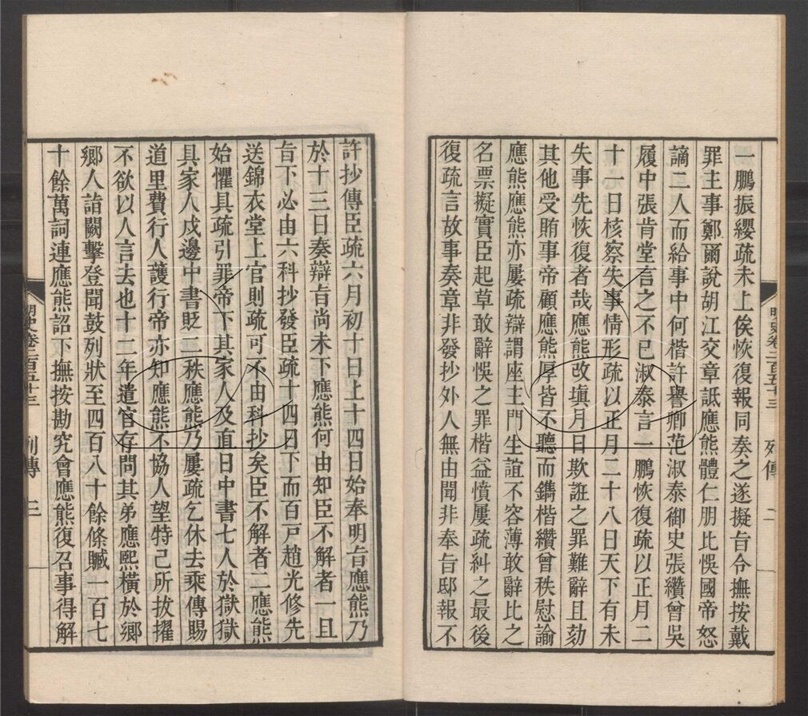 一鵬振纓疏未上俟恢復報同奏之遂擬旨令撫按戴
罪主事鄭爾說胡江交章詆應熊體仁朋比悞國帝怒
謫二人而給事中何楷許譽卿范淑泰御史張纘曾吳
履中張肯堂言之不已淑泰言一鵬恢復疏以正月二
十一日核察失事情形疏以正月二十八日天下有未
失事先恢復者哉應熊改塡月日欺誑之罪難辭且劾
其他受賄事帝顧應熊厚皆不聽而鐫楷纘曾秩慰諭
應熊應熊亦屢疏辯謂座主門生誼不容薄敢辭比之
名票擬實臣起草敢辭悞之罪楷益憤屢疏糾之最後
復疏言故事奏章非發抄外人無由聞非奉旨邸報不
明史卷二百五十三 列傳 二
許抄傳臣疏六月初十日上十四日始奉明旨應熊乃
於十三日奏辯旨尚未下應熊何由知臣不解者一且
旨下必由六科抄發臣疏十四日下而百戸趙光修先
送錦衣堂上官則疏可不由科抄矣臣不解者二應熊
始懼具疏引罪帝下其家人及直日中書七人於獄獄
具家人戍邊中書貶二秩應熊乃屢疏乞休去乘傳賜
道里費行人護行帝亦知應熊不協人望特己所拔擢
不欲以人言去也十二年遣官存問其弟應熙橫於鄉
鄉人詣闕擊登聞鼓列狀至四百八十餘條贓一百七
十餘萬詞連應熊詔下撫按勘究會應熊復召事得解
明史卷二百五十三 列傳 三